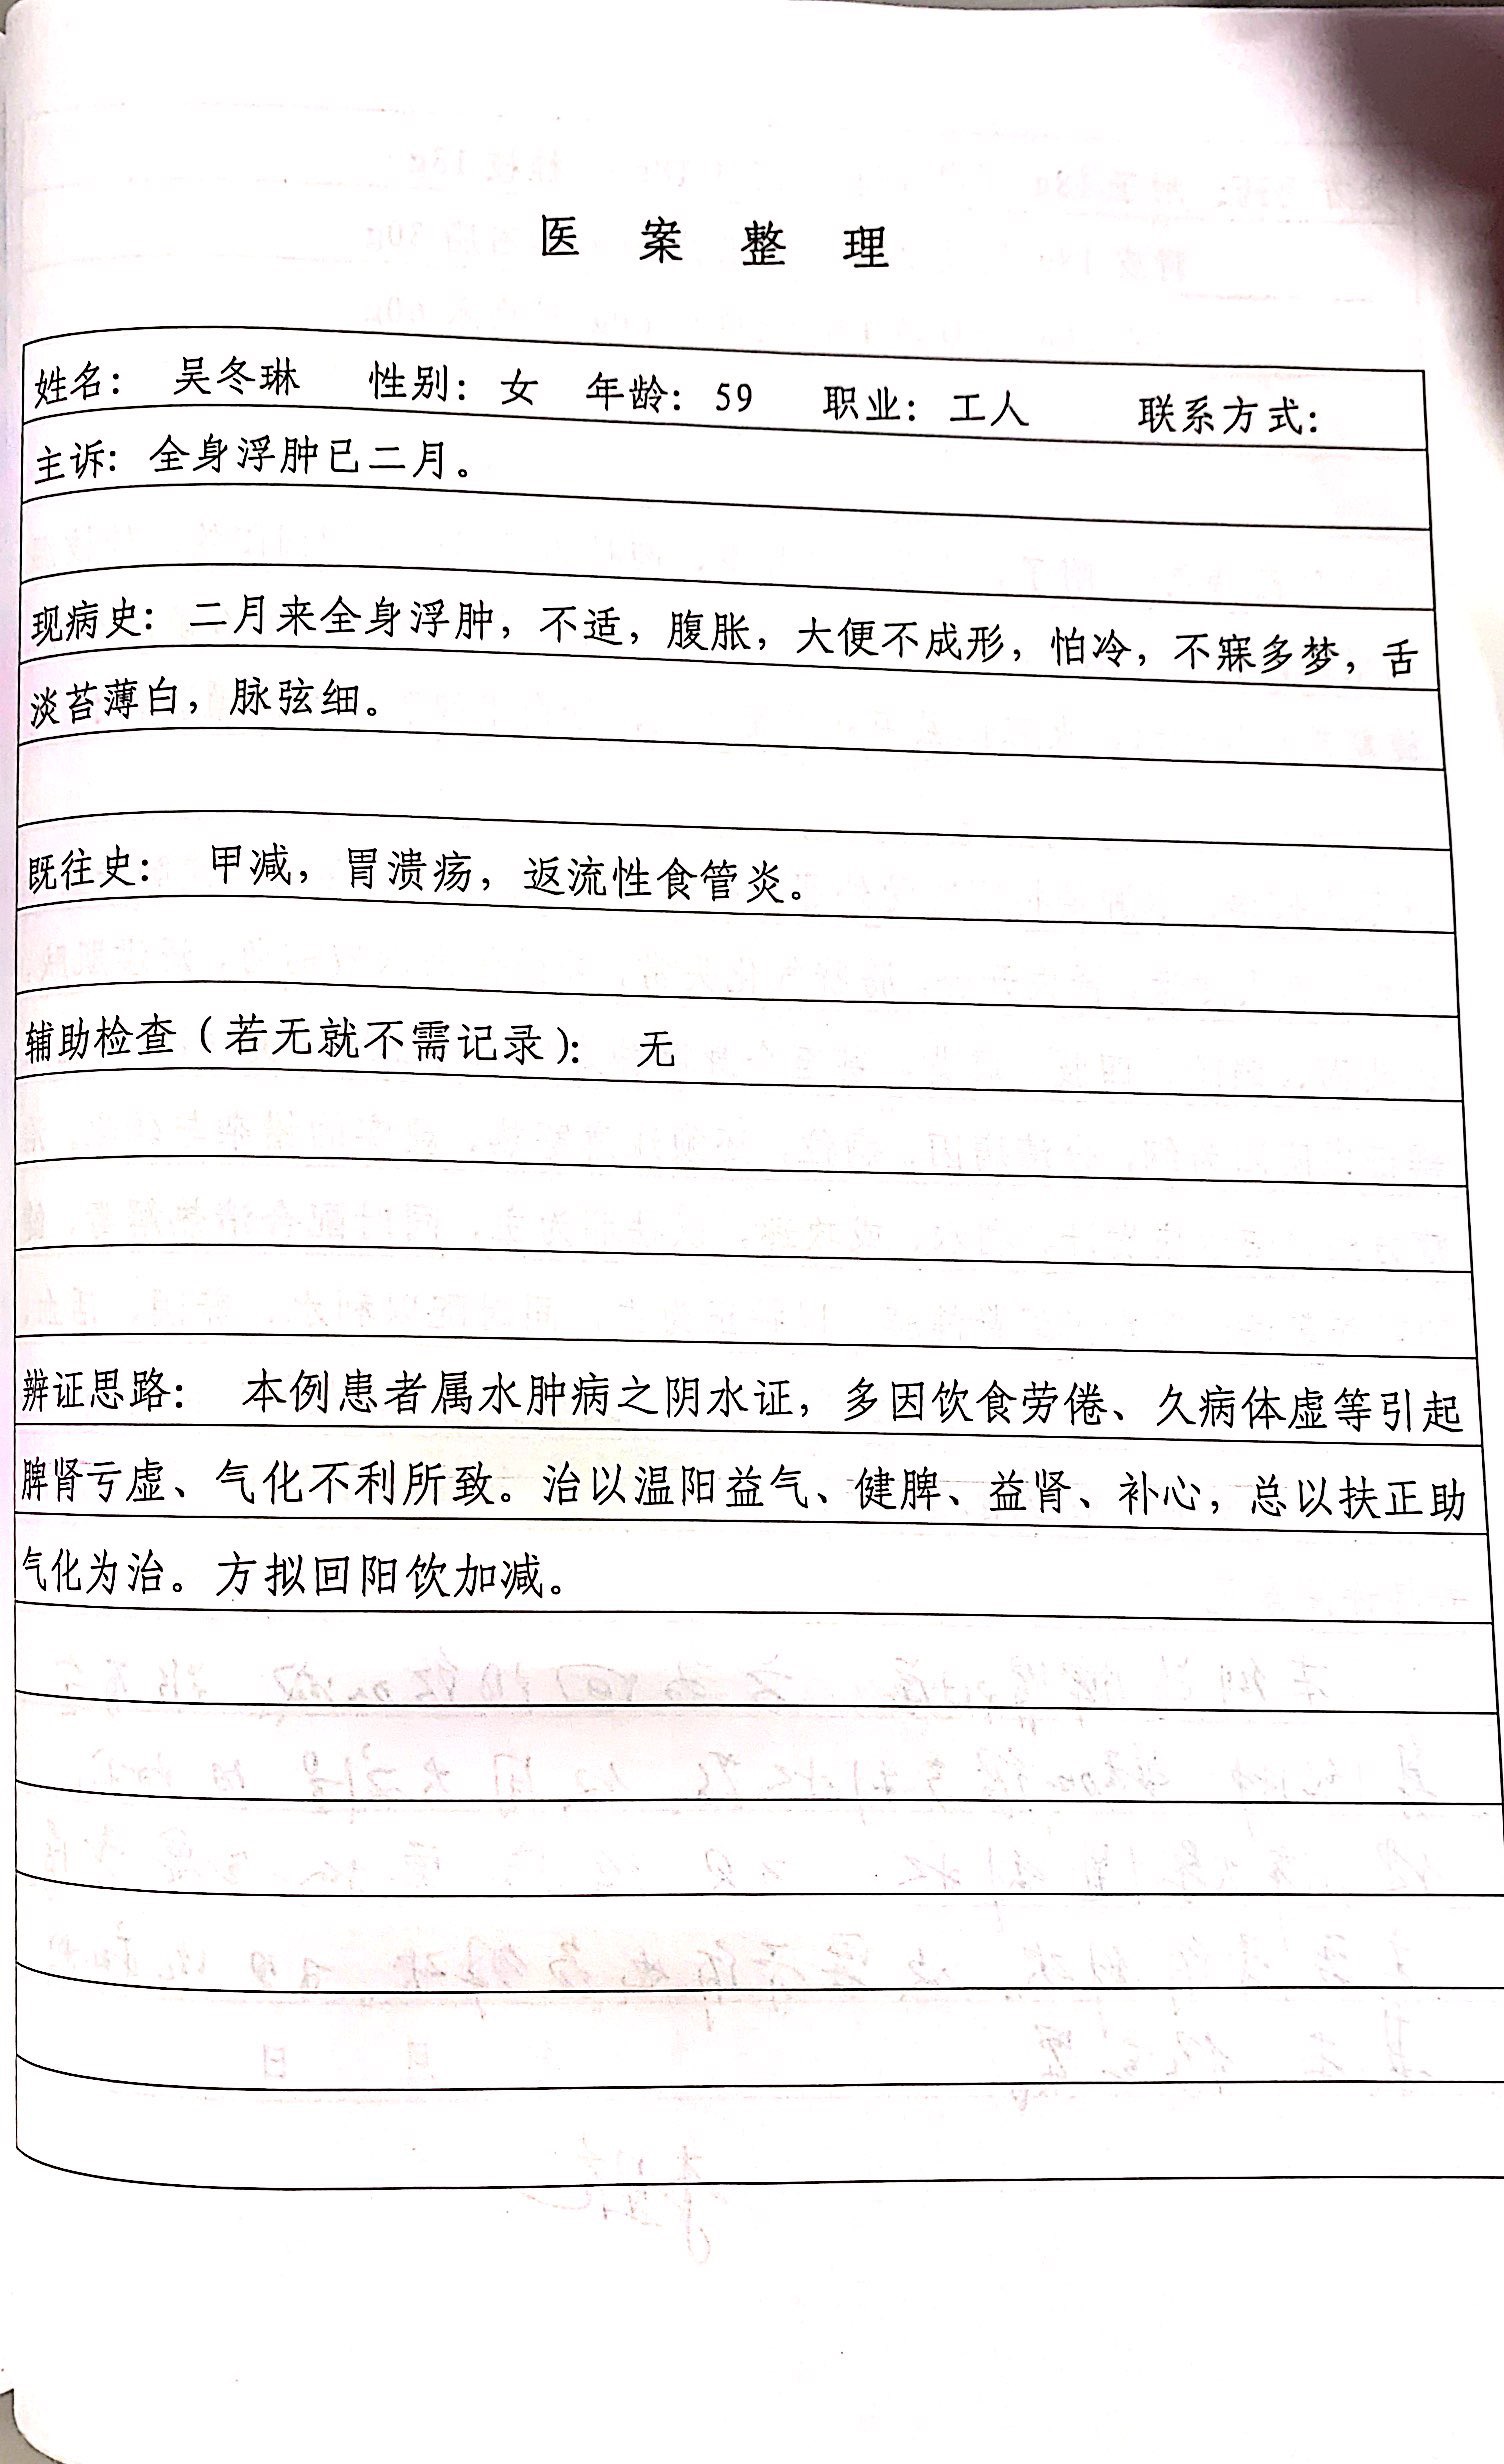 医案整理
姓名： 吴冬琳 性别：女 年龄：59 职业：工人 联系方式：
主诉：全身浮肿已二月。
现病史：二月来全身浮肿，不适，腹胀，大便不成形，怕冷，不寐多梦，舌
淡苔薄白，脉弦细。
既往史： 甲减，胃溃疡，返流性食管炎。
辅助检查（若无就不需记录）： 无
辨证思路： 本例患者属水肿病之阴水证，多因饮食劳倦、久病体虚等引起
脾肾亏虚、气化不利所致。治以温阳益气、健脾、益肾、补心，总以扶正助
气化为治。方拟回阳饮加减。